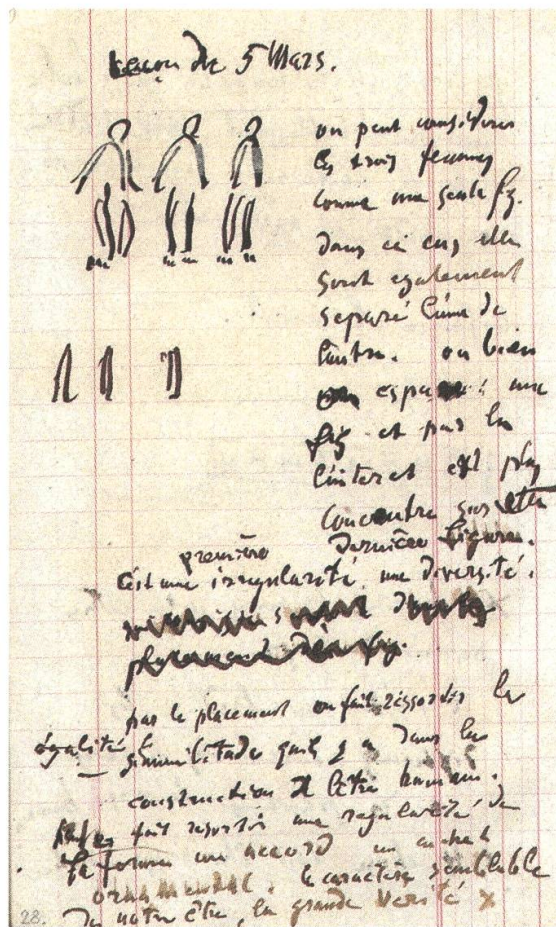 Leçon du 5 Mars.
on peut considérer
les trois femmes
comme une seule fig.
Dans ce cas elle
sont egalement
separé l'une de
l'autre. ou bien
on espace : une
fig et par la
l'interet est plus
concentre sur cette
première Dernière figure.
C'est une irregularité, une diversité.
placement d'une fig.
par le placement on fait ressortir la
égalité &
simmilitude qu'il y a dans la
construction de l'être humain.
fait resortir une regularité de
la forme un accord un cachet
ornamental. le caractère semblable
De notre être, la grande Verité x
28.